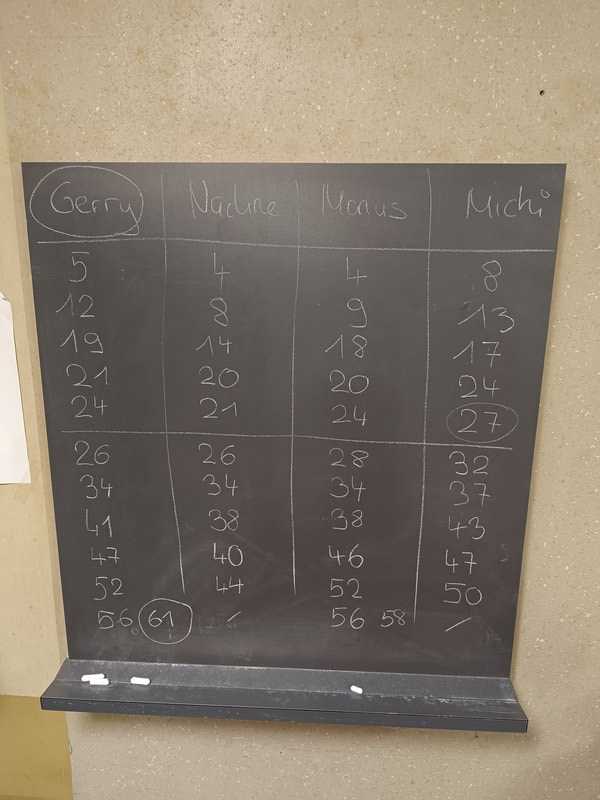 Gerry Nadine Marius Michi
5 4 4 8
12 8 9 13
19 14 18 17
21 20 20 24
24 21 24 27
26 26 28 32
34 34 34 37
41 38 38 43
47 40 46 47
52 44 52 50
56 61 / 56 58 /